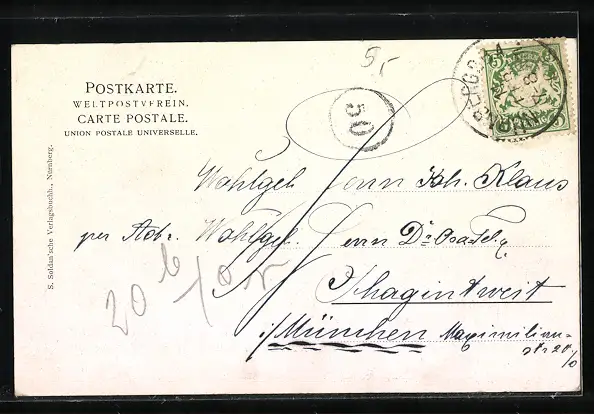 5,-
POSTKARTE.
WELTPOSTVEREIN.
CARTE POSTALE.
UNION POSTALE UNIVERSELLE.
S. Soldan'sche Verlagsbuchh., Nürnberg.
50
5
Wohlgeb. Herrn Klaus
per Adr. Wohlgeb. Herrn Dr.
Schagintweit
i/München Maximilian=
str 20
20